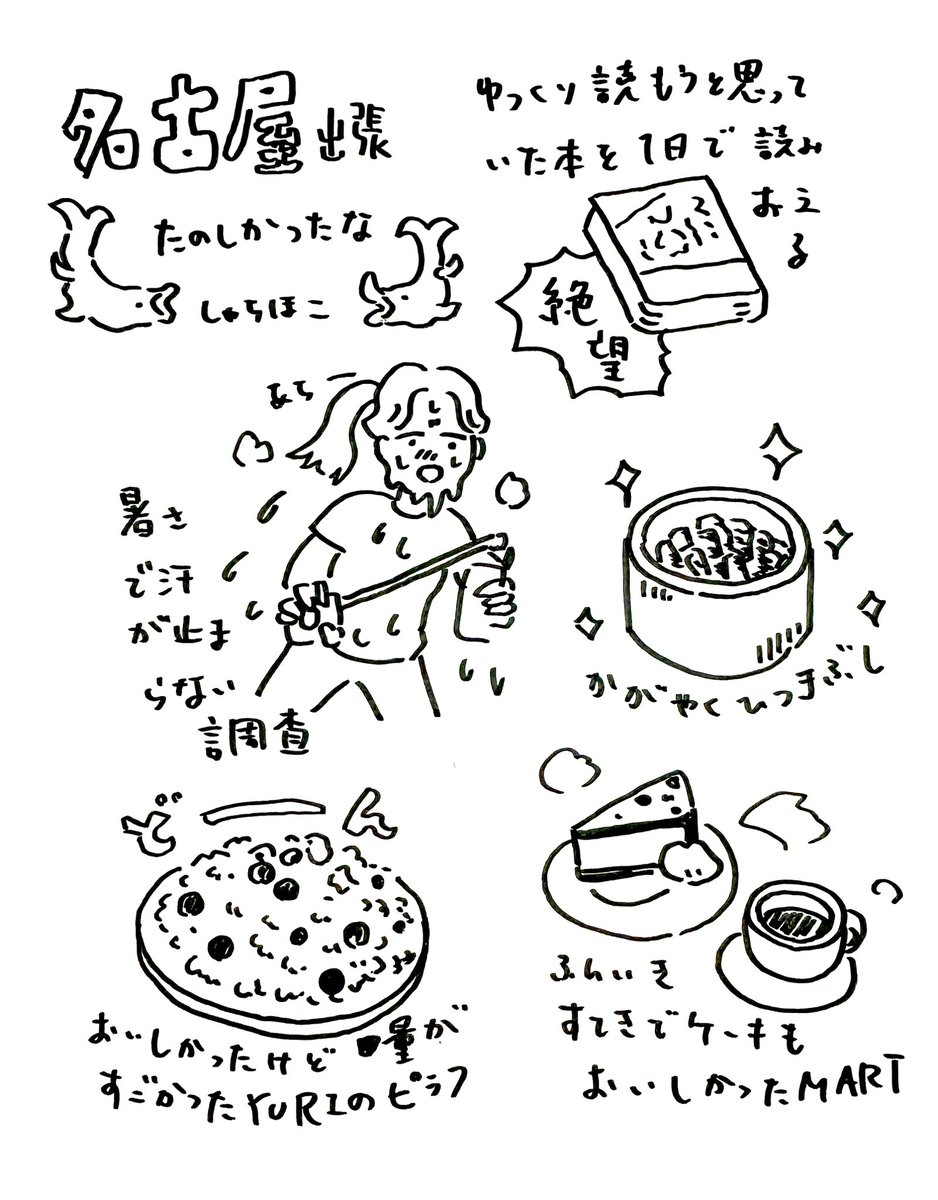 名古屋出張
たのしかったな
しゃちほこ
ゆっくり読もうと思って
いた本を1日で読み
おえ
る
絶
望
あち
暑さ
で汗
が止ま
らない
調査
かがやくひつまぶし
どーん
おいしかったけど量が
すごかったYURIのピラフ
ふんいき
すてきでケーキも
おいしかったMART